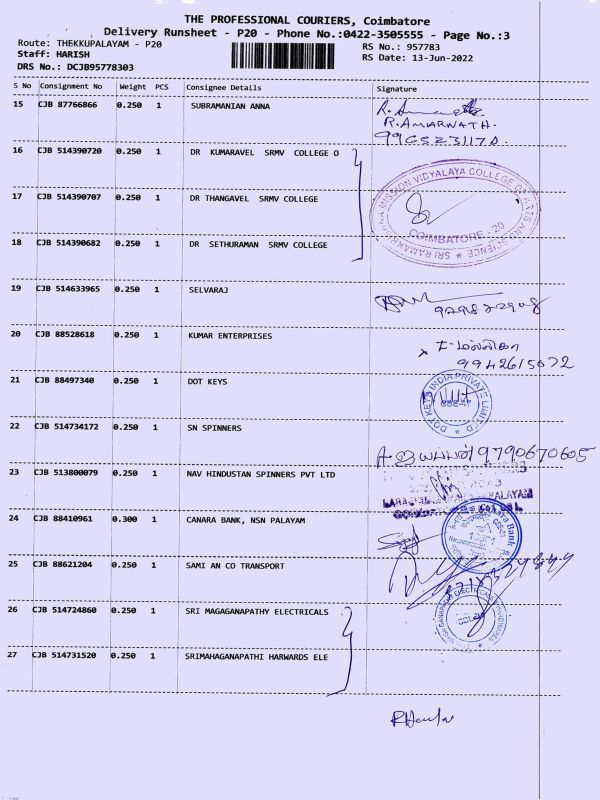 THE PROFESSIONAL COURIERS, Coimbatore
Delivery Runsheet - P20 - Phone No.:0422-3505555 - Page No.:3
Route: THEKKUPALAYAM - P20 RS No.: 957783
Staff: HARISH RS Date: 13-Jun-2022
DRS No.: DCJB95778303
S No Consignment No Weight PCS Consignee Details Signature
15 CJB 87766866 0.250 1 SUBRAMANIAN ANNA
R. AMARNATH.
16 CJB 514390720 0.250 1 DR KUMARAVEL SRMV COLLEGE O
17 CJB 514390707 0.250 1 DR THANGAVEL SRMV COLLEGE
SRI RAMAKRISHNA MISSION VIDYALAYA COLLEGE OF ARTS AND SCIENCE
COIMBATORE - 20
18 CJB 514390682 0.250 1 DR SETHURAMAN SRMV COLLEGE
19 CJB 514633965 0.250 1 SELVARAJ
20 CJB 88528618 0.250 1 KUMAR ENTERPRISES
9942615072
21 CJB 88497340 0.250 1 DOT KEYS
DOT KEYS INDIA PRIVATE LIMITED
22 CJB 514734172 0.250 1 SN SPINNERS
9790670605
23 CJB 513800079 0.250 1 NAV HINDUSTAN SPINNERS PVT LTD
24 CJB 88410961 0.300 1 CANARA BANK, NSN PALAYAM
Canara Bank
25 CJB 88621204 0.250 1 SAMI AN CO TRANSPORT
26 CJB 514724860 0.250 1 SRI MAGAGANAPATHY ELECTRICALS
27 CJB 514731520 0.250 1 SRIMAHAGANAPATHI HARWARDS ELE